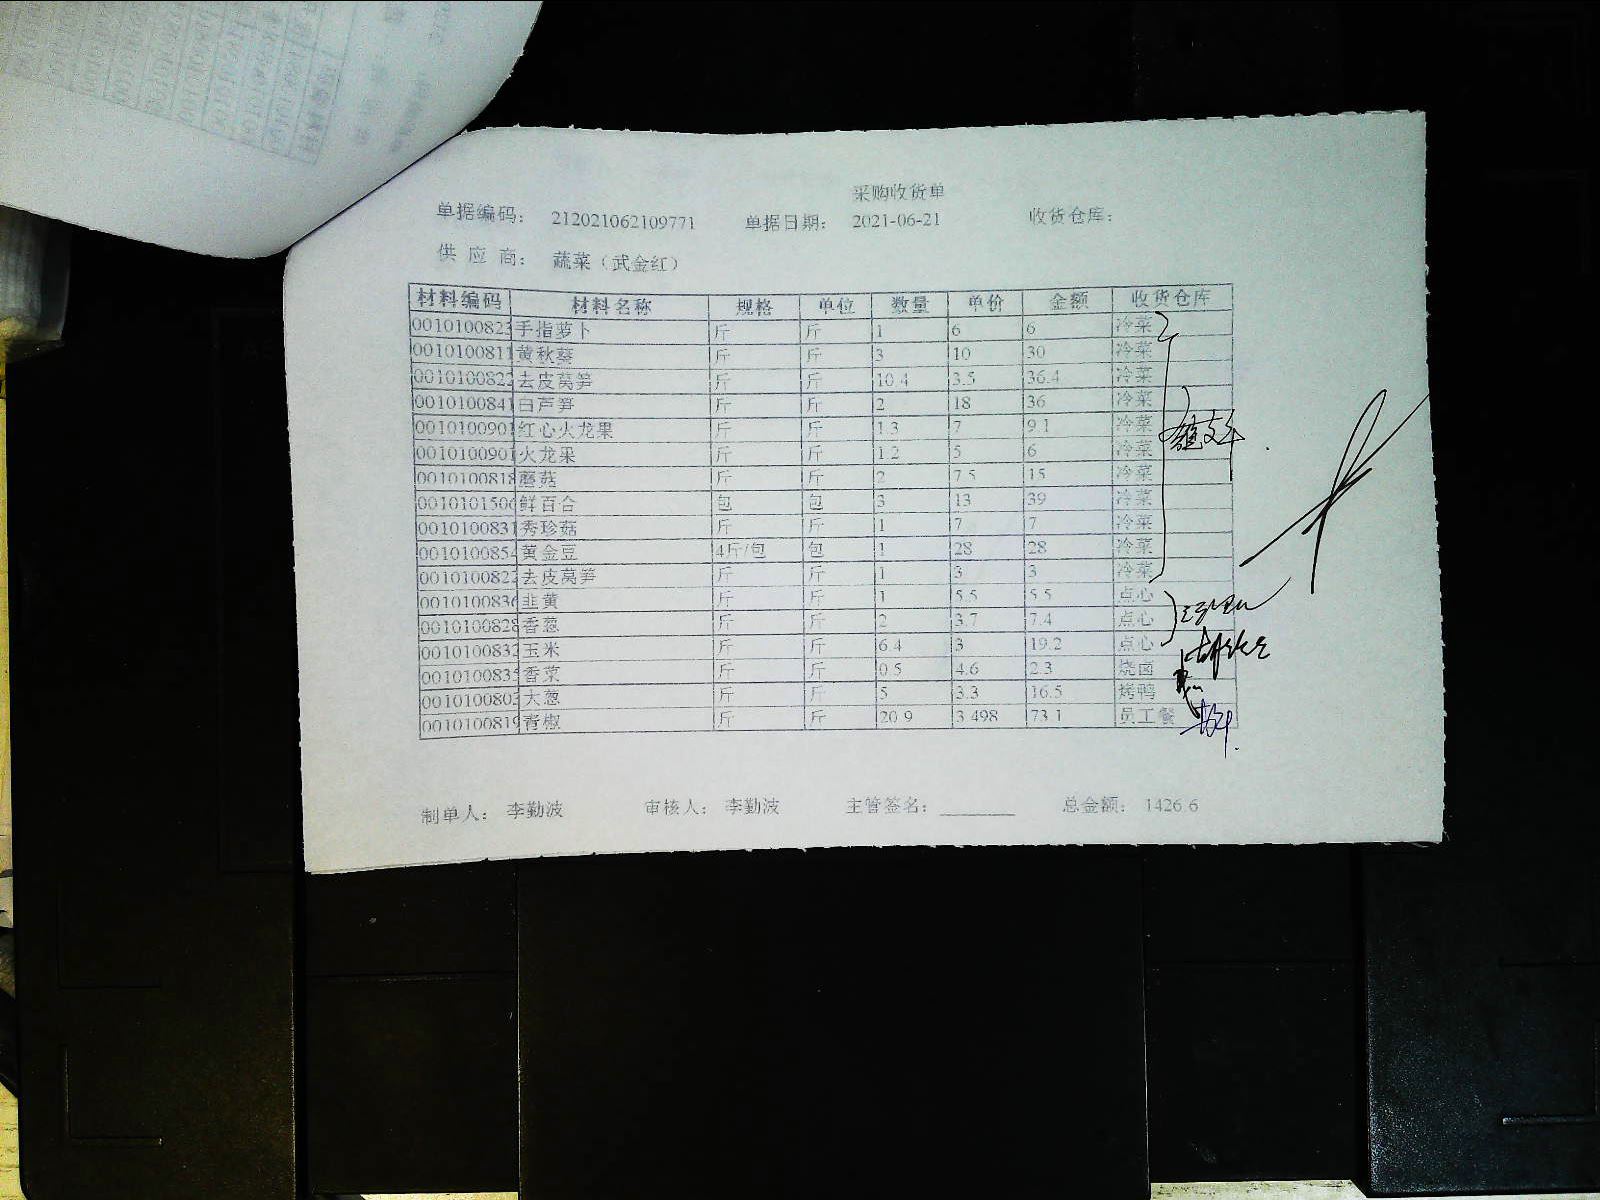 采购收货单
单据编码： 212021062109771 单据日期： 2021-06-21 收货仓库：
供 应 商： 蔬菜（武金红）
材料编码 材料名称 规格 单位 数量 单价 金额 收货仓库
0010100823 手指萝卜 斤 斤 1 6 6 冷菜
0010100811 黄秋葵 斤 斤 3 10 30 冷菜
0010100822 去皮莴笋 斤 斤 10.4 3.5 36.4 冷菜
0010100841 白芦笋 斤 斤 2 18 36 冷菜
0010100901 红心火龙果 斤 斤 1.3 7 9.1 冷菜
0010100901 火龙果 斤 斤 1.2 5 6 冷菜
0010100818 蘑菇 斤 斤 2 7.5 15 冷菜
0010101506 鲜百合 包 包 3 13 39 冷菜
0010100831 秀珍菇 斤 斤 1 7 7 冷菜
0010100854 黄金豆 4斤/包 包 1 28 28 冷菜
0010100822 去皮莴笋 斤 斤 1 3 3 冷菜
0010100836 韭黄 斤 斤 1 5.5 5.5 点心
0010100828 香葱 斤 斤 2 3.7 7.4 点心
0010100832 玉米 斤 斤 6.4 3 19.2 点心
0010100835 香菜 斤 斤 0.5 4.6 2.3 烧卤
0010100803 大葱 斤 斤 5 3.3 16.5 烤鸭
0010100819 青椒 斤 斤 20.9 3.498 73.1 员工餐
制单人： 李勤波 审核人： 李勤波 主管签名： 总金额： 1426.6